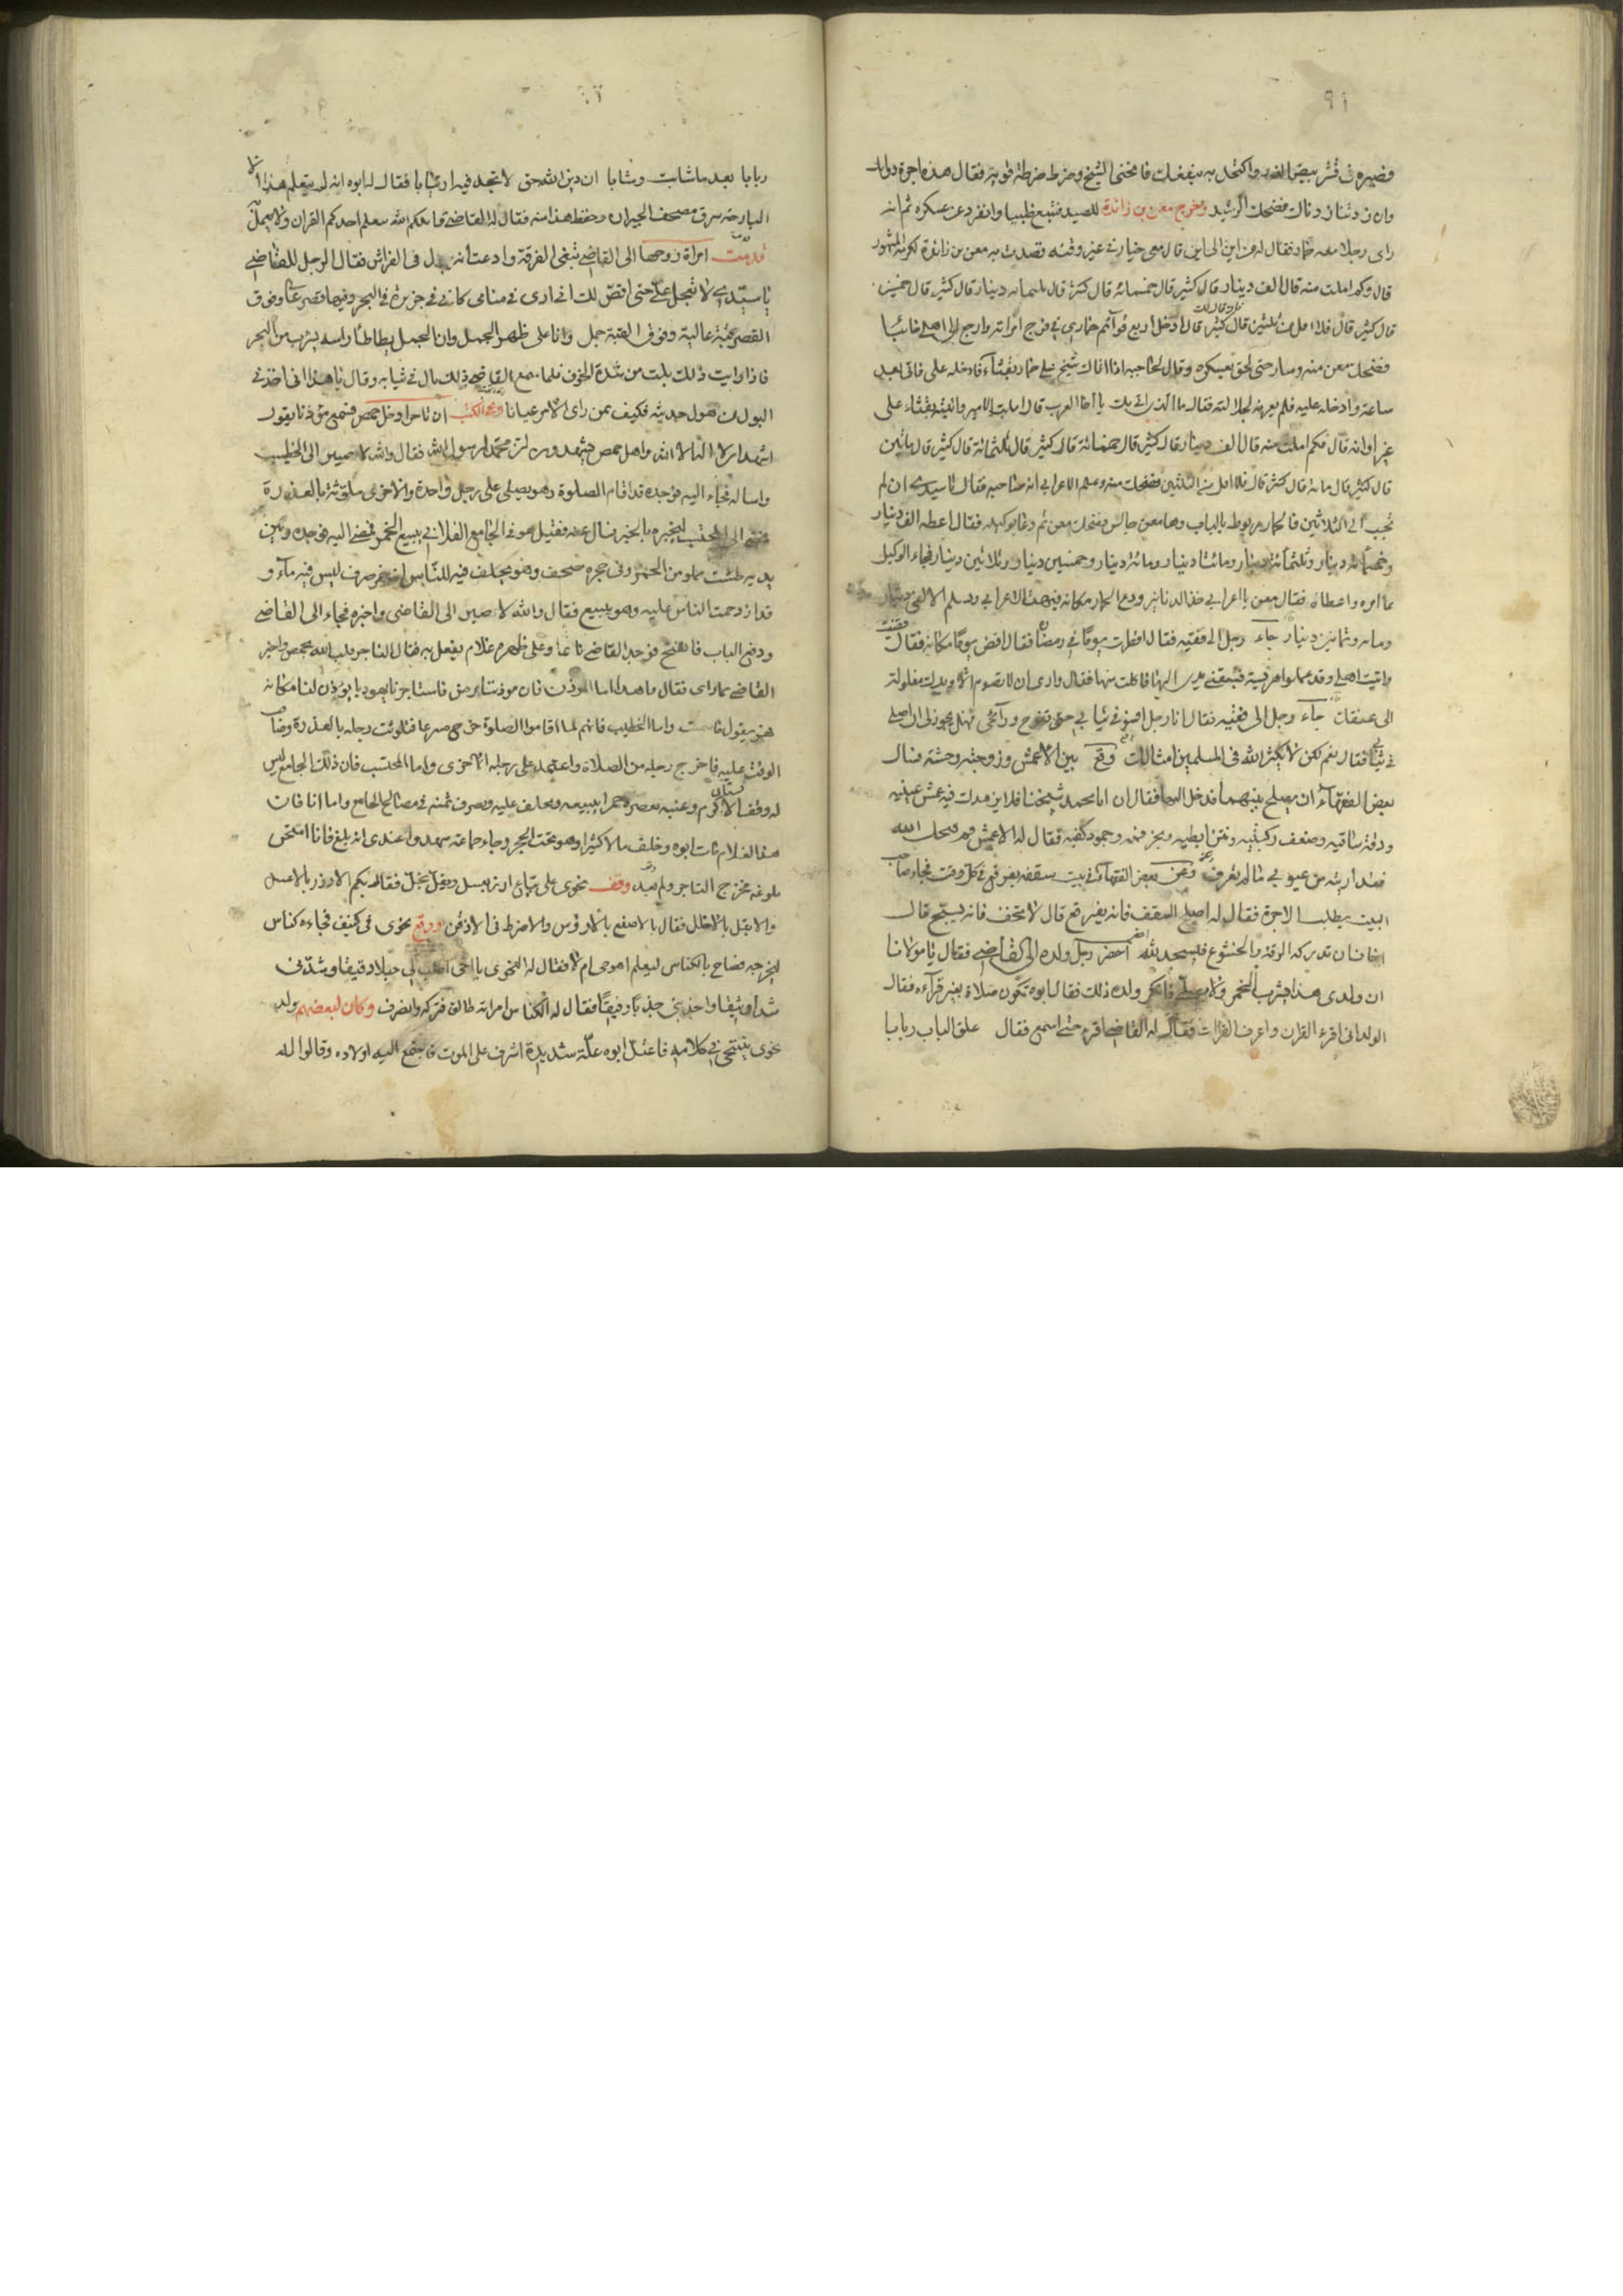 فصيره في قشر بيض الذر واكتحل به ينفعك فانحنى الشيخ وضرط ضرطة قوية فقال هذه اجرة دوائك
وان زدتنا زدناك فضحك الرشيد وخرج معن بن زائدة للصيد فتبع ظبيا وانفرد عن عسكره ثم انه
راى رجلا معه حمار فقال له من اين الى اين قال معي خيار في غير وقته قصدت به معن بن زائدة لكرمه المشهور
قال وكم املت منه قال الف دينار قال كثير قال خمسمائة قال كثير قال ثلثمائة دينار قال كثير قال خمسين
قال كثير قال فلا اقل من ثلثين قال كثير قال ادخل اربع قوائم حماري في فرج امراته وارجع الى اهلي خائبا
فضحك معن منه وسار حتى لحق بعسكره وقال لحاجبه اذا اتاك شيخ على حمار بقثاء فادخله علي فاتى بعد
ساعة وادخله عليه فلم يعرفه لجلالته فقال ما الذي اتى بك يا اخا العرب قال املت الامير واتيته بقثاء على
غير اوانه قال فكم املت منه قال الف دينار قال كثير قال خمسمائة قال كثير قال ثلثمائة قال كثير قال مائتين
قال كثير قال مائة قال كثير قال فلا اقل من الثلثين فضحك منه وعلم الاعرابي انه صاحبه فقال يا سيدي ان لم
تجب الى الثلاثين فالحمار مربوط بالباب وها معن جالس فضحك معن ثم دعا بوكيله فقال اعطه الف دينار
وخمسمائة دينار وثلثمائة دينار ومائتا دينار ومائة دينار وخمسين دينار وثلاثين دينار فجاء الوكيل
بما امره واعطاه فقال معن يا اعرابي خذ الدنانير ودع الحمار مكانه فبهت الاعرابي وتسلم الالفي دينار
ومائه وثمانين دينار جاء رجل الى فقيه فقال افطرت يوما في رمضان فقال اقض يوما مكانه فقال قضيت
واتيت اهلي وقد عملوا هريسة فسبقتني يدي اليها فاكلت منها فقال وارى ان لا تصوم الا ويدك مغلولة
الى عنقك جاء رجل الى فقيه فقال انا رجل افسو في ثيابي حتى تفوح روائحي فهل يجوز لي ان اصلي
في ثيابي فقال نعم لكن لا يكثر الله في المسلمين امثالك وقع بين الاعمش وزوجته وحشة فسال
بعض الفقهاء ان يصلح بينهما فدخل اليها فقال ان ابا محمد شيخنا فلا يزهدك فيه عمش عينيه
ودقة ساقيه وضعف ركبتيه ونتن ابطيه وبخر فمه وجمود كفيه فقال له الاعمش قم قبحك الله
فقد اريته من عيوبي ما لم تعرف وعن بعض الفقهاء في بيت سقفه يفرقع في كل وقت فجاء صاحب
البيت يطلب الاجرة فقال له اصلح السقف فانه يفرقع قال لا تخف فانه يسبح قال
اخاف ان تدركه الرقة والخشوع فيسجد لله احضر رجل ولده الى القاضي فقال يا مولانا
ان ولدي هذا يشرب الخمر ولا يصلي فانكر ولده ذلك فقال ابوه تكون صلاة بغير قراءه فقال
الولد اني اقرء القران واعرف القراات فقال له القاضي اقرء حتى اسمع فقال علق الباب ربابا
ربابا بعد ما شابت وشابا ان دين الله حق لا تجد فيه ارتيابا فقال له ابوه انه لم يتعلم هذا الا
البارحة سرق مصحف الجيران وحفظ هذا منه فقال له القاضي قاتلكم الله يعلم احدكم القران ولا يعمل به
قدمت امراة زوجها الى القاضي تبغي الفرقة وادعت انه يبول في الفراش فقال الرجل للقاضي
يا سيدي لا تعجل علي حتى اقص لك اني ارى في منامي كاني في جزيرة في البحر وفيها قصر عال وفوق
القصر قبة عالية وفوق القبة جمل وانا على ظهر الجمل وان الجمل يطاطأ راسه يشرب من البحر
فاذا رايت ذلك بلت من شدة الخوف فلما سمع القاضي ذلك بال في ثيابه وقال يا هذا انا اخذني
البول من هول حديثه فكيف بمن راى الامر عيانا وفي الكتب ان تاجرا دخل حمص فسمع مؤذنا يقول
اشهد ان لا اله الا الله واهل حمص يشهدون ان محمد ارسول الله فقال والله لامضين الى الخطيب
واساله فجاء اليه فوجده قد اقام الصلوة وهو يصلي على رجل واحدة والاخرى ملوثة بالعذرة
فمضى الى المحتسب ليخبره بالخبر فسال عنه فقيل هو في الجامع الفلاني يبيع الخمر فمضى اليه فوجده وبين
يديه طشت مملو من الخمر وفي حجره مصحف وهو يحلف فيه للناس انه خمر صرف ليس فيه ماء و
قد ازدحمت الناس عليه وهو يبيع فقال والله لامضين الى القاضي واخبره فجاء الى القاضي
ودفع الباب فانفتح فوجد القاضي نائما وعلى ظهره غلام يفعل به فقال التاجر قلب الله حمص واخبر
القاضي بما راى فقال ما هذا اما المؤذن فان موذننا مرض فاستاجرنا يهوديا يؤذن لنا مكانه
فهو يقول ما سمعت واما الخطيب فانهم لما اقاموا الصلوة خرج مسرعا فتلوثت رجله بالعذرة وضاق
الوقت عليه فاخرج رجله من الصلاة واعتمد على رجله الاخرى واما المحتسب فان ذلك الجامع ليس
له وقف الا كرم وعنبه يعصره خمرا يبيعه ويحلف عليه ويصرف ثمنه في مصالح الجامع واما انا فان
هذا الغلام مات ابوه وخلف مالا كثيرا وهو تحت الحجر وجاء جماعة شهدوا عندي انه بلغ فانا امتحن
بلوغه فخرج التاجر ولم يعد وقف نحوي على بياع ارز بعسل وبقل بخل فقال بكم الارز بالاعسل
والابقل بالاخلل فقال بالاصفع بالارؤس والاضرط في الاذقن ووقع نحوي في كنيف فجاءه كناس
ليخرجه فصاح بالكناس ليعلم اهو حي ام لا فقال له النحوي يا اخي اطلب لي حبلا دقيقا وشدني
شدا وثيقا واجذبني جذبا رفيقا فقال له الكناس امراته طالق فتركه وانصرف وكان لبعضهم ولد
نحوي يتنحى في كلامه فاعتل ابوه علة شديدة اشرف على الموت فاجتمع اليه اولاده وقالوا له